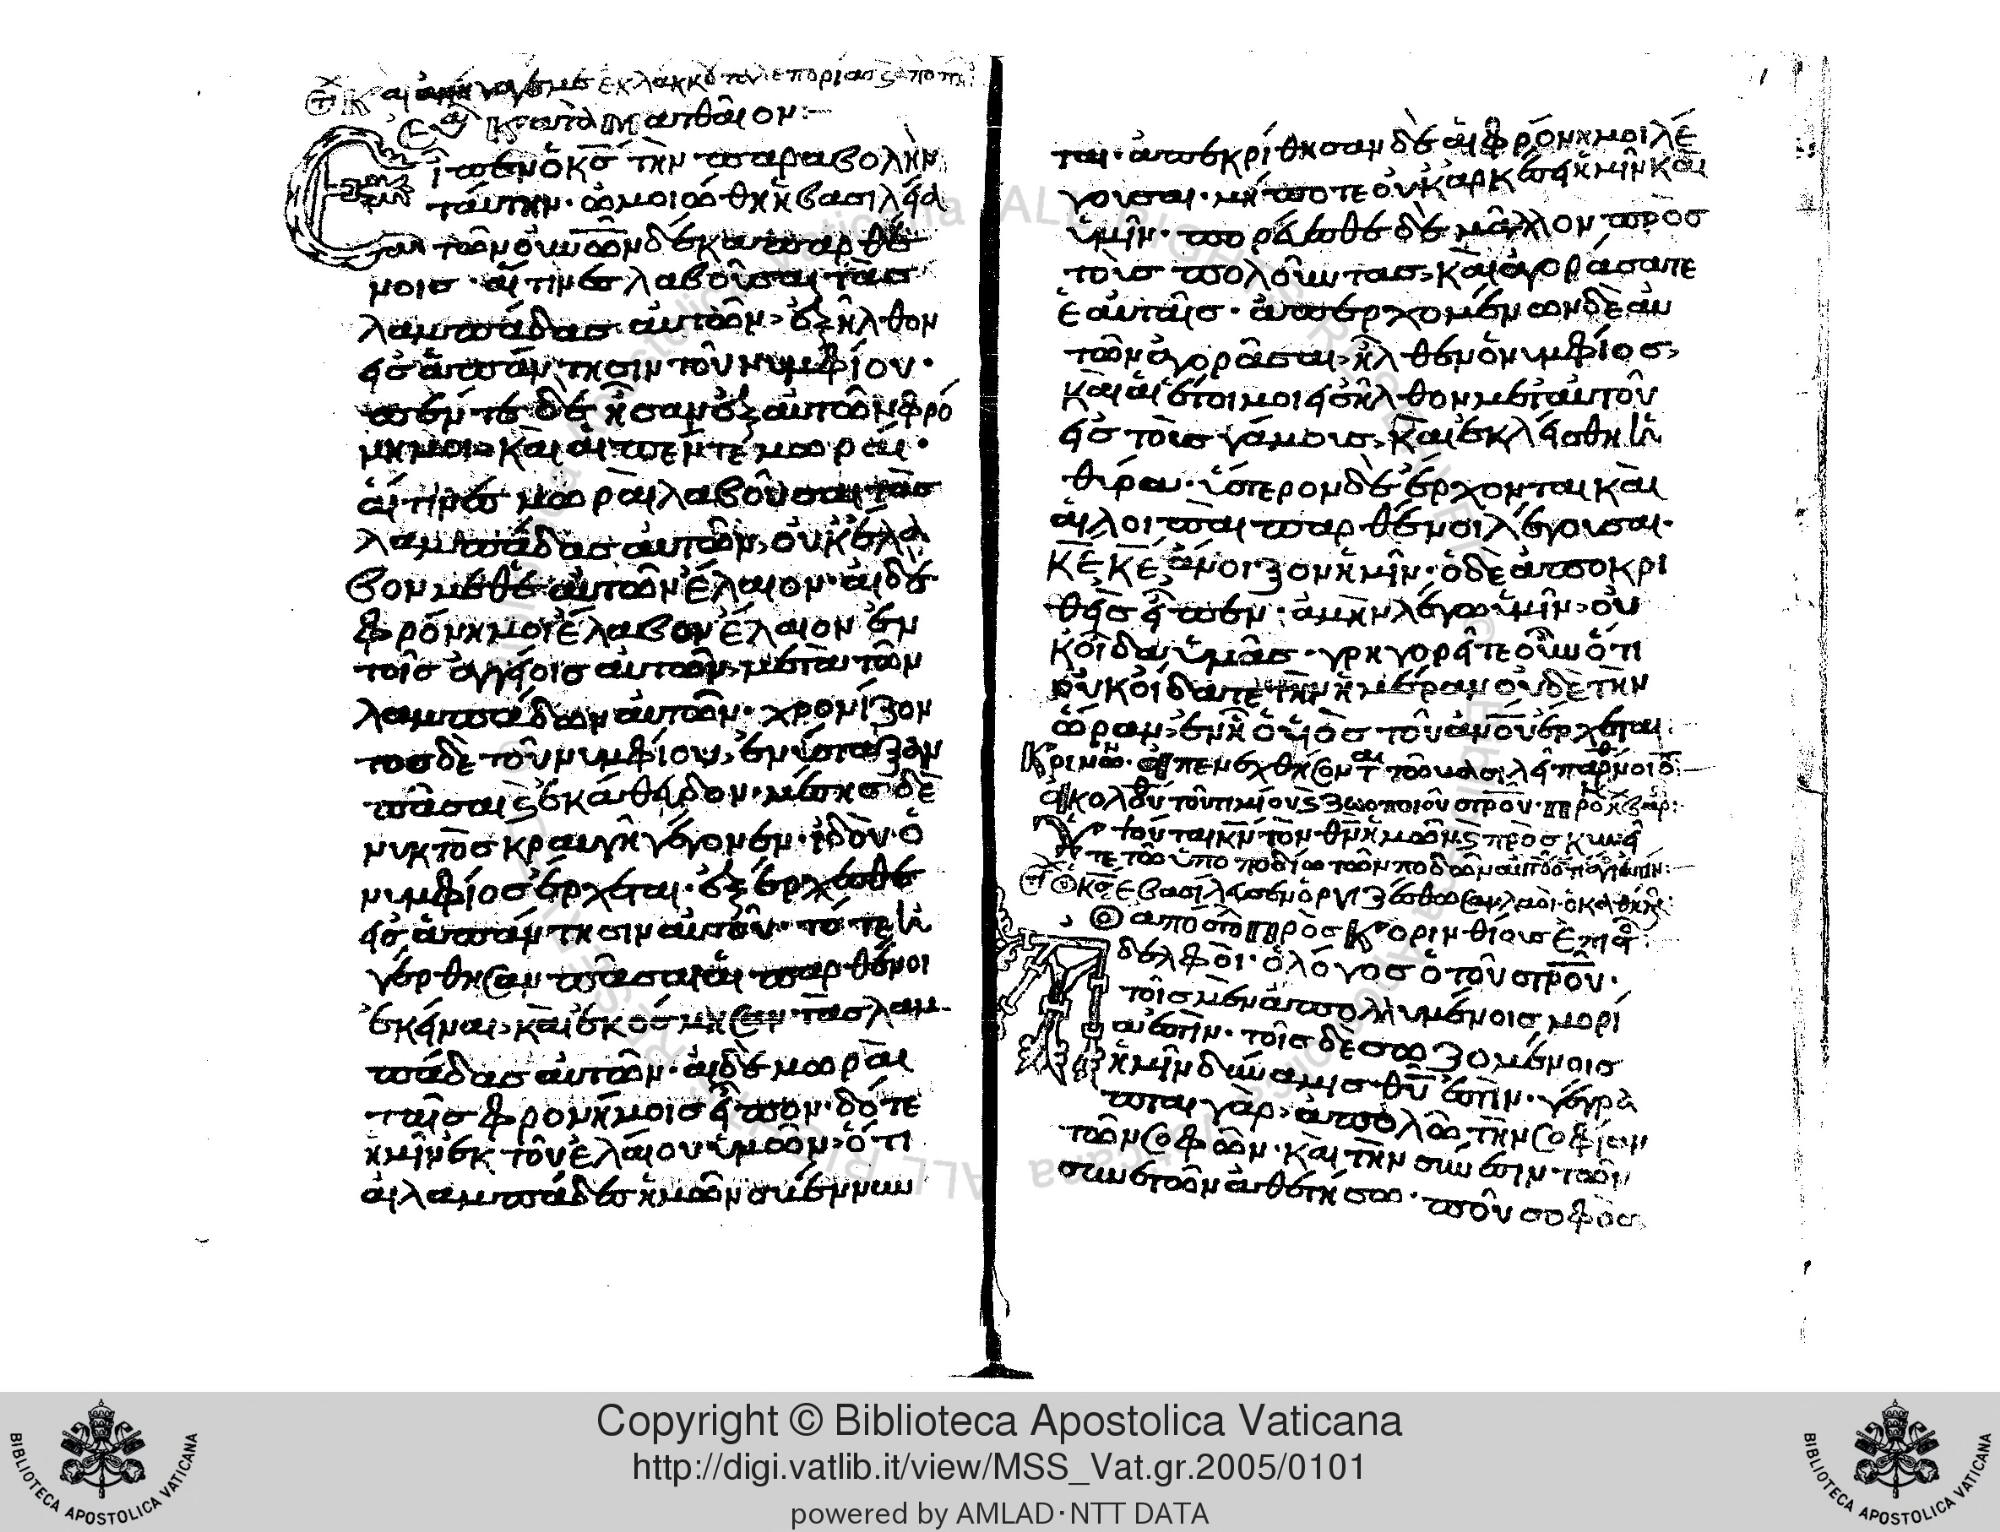 Κ αὶ ἀνήγαγέ με ἐκ λάκκου ταλεπορίας
κατὰ Ματθαῖον:
Εἶπεν ὁ κς τὴν παραβολὴν
ταύτην· ὁμοιώθη ἡ βασιλεία
τῶν οὐνῶν δέκα παρθέ
νοις· αἵτινες λαβοῦσαι τὰς
λαμπάδας αὐτῶν, ἐξῆλθον
εἰς ἀπάντησιν τοῦ νυμφίου·
πέντε δὲ ἦσαν ἐξ αὐτῶν φρό
νημοι, καὶ αἱ πέντε μωραί·
αἵτινες μωραὶ λαβοῦσαι τὰς
λαμπάδας αὐτῶν, οὐκ ἔλα
βον μεθ' ἑαυτῶν ἔλαιον· αἱ δὲ
φρόνημοι ἔλαβον ἔλαιον ἐν
τοῖς ἀγγείοις αὐτῶν, μετὰ τῶν
λαμπάδων αὐτῶν· χρονίζον
τος δὲ τοῦ νυμφίου, ἐνύσταξαν
πᾶσαι ϗ ἐκάθευδον· μέσης δὲ
νυκτὸς κραυγὴ γέγονεν· ἰδοὺ ὁ
νυμφίος ἔρχεται· ἐξέρχεσθε
εἰς ἀπάντησιν αὐτοῦ· τότε ἠ
γέρθησαν πᾶσαι αἱ παρθένοι
ἐκεῖναι, καὶ ἐκόσμησαν τὰς λαμ
πάδας αὐτῶν· αἱ δὲ μωραὶ
ταῖς φρονήμοις εἶπον· δότε
ἡμῖν ἐκ τοῦ ἐλαίου ὑμῶν, ὅτι
αἱ λαμπάδες ἡμῶν σβέννυν
ται· ἀπεκρίθησαν δὲ αἱ φρόνημοι λέ
γουσαι· μήποτε οὐκ ἀρκέσει ἡμῖν καὶ
ὑμῖν· πορεύεσθε δὲ μᾶλλον πρὸς
τοὺς πολοῦντας, καὶ ἀγοράσατε
ἑαυταῖς· ἀπερχομένων δὲ αὐ
τῶν ἀγορᾶσαι, ἦλθεν ὁ νυμφίος,
καὶ αἱ ἕτοιμοι εἰσῆλθον μετ' αὐτοῦ
εἰς τοὺς γάμους, καὶ ἐκλείσθη ἡ
θύρα· ὕστερον δὲ ἔρχονται καὶ
αἱ λοιπαὶ παρθένοι λέγουσαι·
κε κε ἄνοιξον ἡμῖν· ὁ δὲ ἀποκρι
θεὶς εἶπεν· ἀμὴν λέγω ὑμῖν, οὐ
κ οἶδα ὑμᾶς· γρηγορεῖτε οὖν ὅτι
οὐκ οἴδατε τὴν ἡμέραν οὐδὲ τὴν
ὥραν, ἐν ᾗ ὁ υἱὸς τοῦ ἀνου ἔρχεται·
ἀκολου τοῦ τιμίου ϗ ζωοποιοῦ στρου·
Υψοῦται κν τὸν θν ἡμῶν ϗ προσκυνεῖ
τε τῶ ὑποποδίω τῶν ποδῶν αὐτοῦ
ὁ κς ἐβασίλευσεν ὀργιζέσθωσαν λαοί· ὁ καθήμ
ἀποστο πρὸς Κορινθίους
Αδελφοὶ· ὁ λόγος ὁ τοῦ στρου·
τοῖς μὲν ἀπολλυμένοις μορί
α ἐστὶν· τοῖς δὲ σωζομένοις
ἡμῖν δύναμις θυ ἐστὶν· γέγρα
πται γάρ, ἀπολῶ τὴν σοφίαν
τῶν σοφῶν· καὶ τὴν σύνεσιν τῶν
συνετῶν ἀθετήσω· ποῦ σοφός
Copyright © Biblioteca Apostolica Vaticana
http://digi.vatlib.it/view/MSS_Vat.gr.2005/0101
powered by AMLAD·NTT DATA
BIBLIOTECA APOSTOLICA VATICANA
BIBLIOTECA APOSTOLICA VATICANA